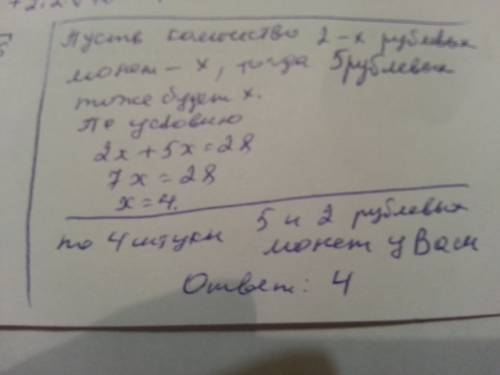 Пусть количество 2-х рублевых
монет - x, тогда 5 рублевых
тоже будет x.
По условию
2x + 5x = 28
7x = 28
x = 4.
по 4 штуки 5 и 2 рублевых
монет у Васи
Ответ: 4